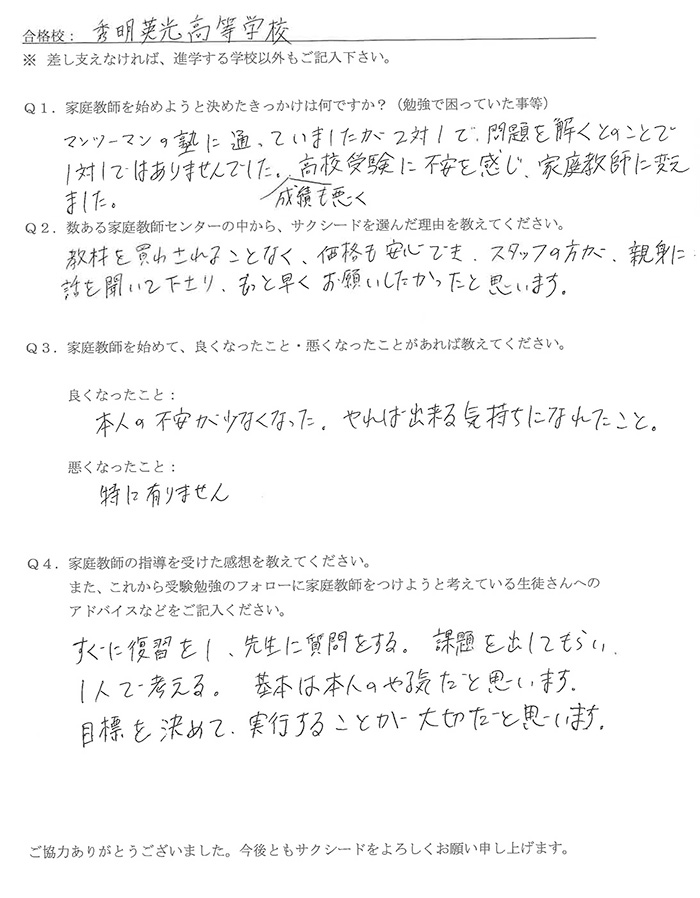 合格校： 秀明英光高等学校
※ 差し支えなければ、進学する学校以外もご記入下さい。
Ｑ１．家庭教師を始めようと決めたきっかけは何ですか？（勉強で困っていた事等）
マンツーマンの塾に通っていましたが２対１で、問題を解くとのことで
１対１ではありませんでした。高校受験に不安を感じ、家庭教師に変え
ました。
成績も悪く
Ｑ２．数ある家庭教師センターの中から、サクシードを選んだ理由を教えてください。
教材を買わされることなく、価格も安心でき、スタッフの方が、親身に
話を聞いて下さり、もっと早くお願いしたかったと思います。
Ｑ３．家庭教師を始めて、良くなったこと・悪くなったことがあれば教えてください。
良くなったこと：
本人の不安が少なくなった。やれば出来る気持ちになれたこと。
悪くなったこと：
特に有りません
Ｑ４．家庭教師の指導を受けた感想を教えてください。
また、これから受験勉強のフォローに家庭教師をつけようと考えている生徒さんへの
アドバイスなどをご記入ください。
すぐに復習をし、先生に質問をする。課題を出してもらい、
１人で考える。基本は本人のやる気だと思います。
目標を決めて、実行することが大切だと思います。
ご協力ありがとうございました。今後ともサクシードをよろしくお願い申し上げます。